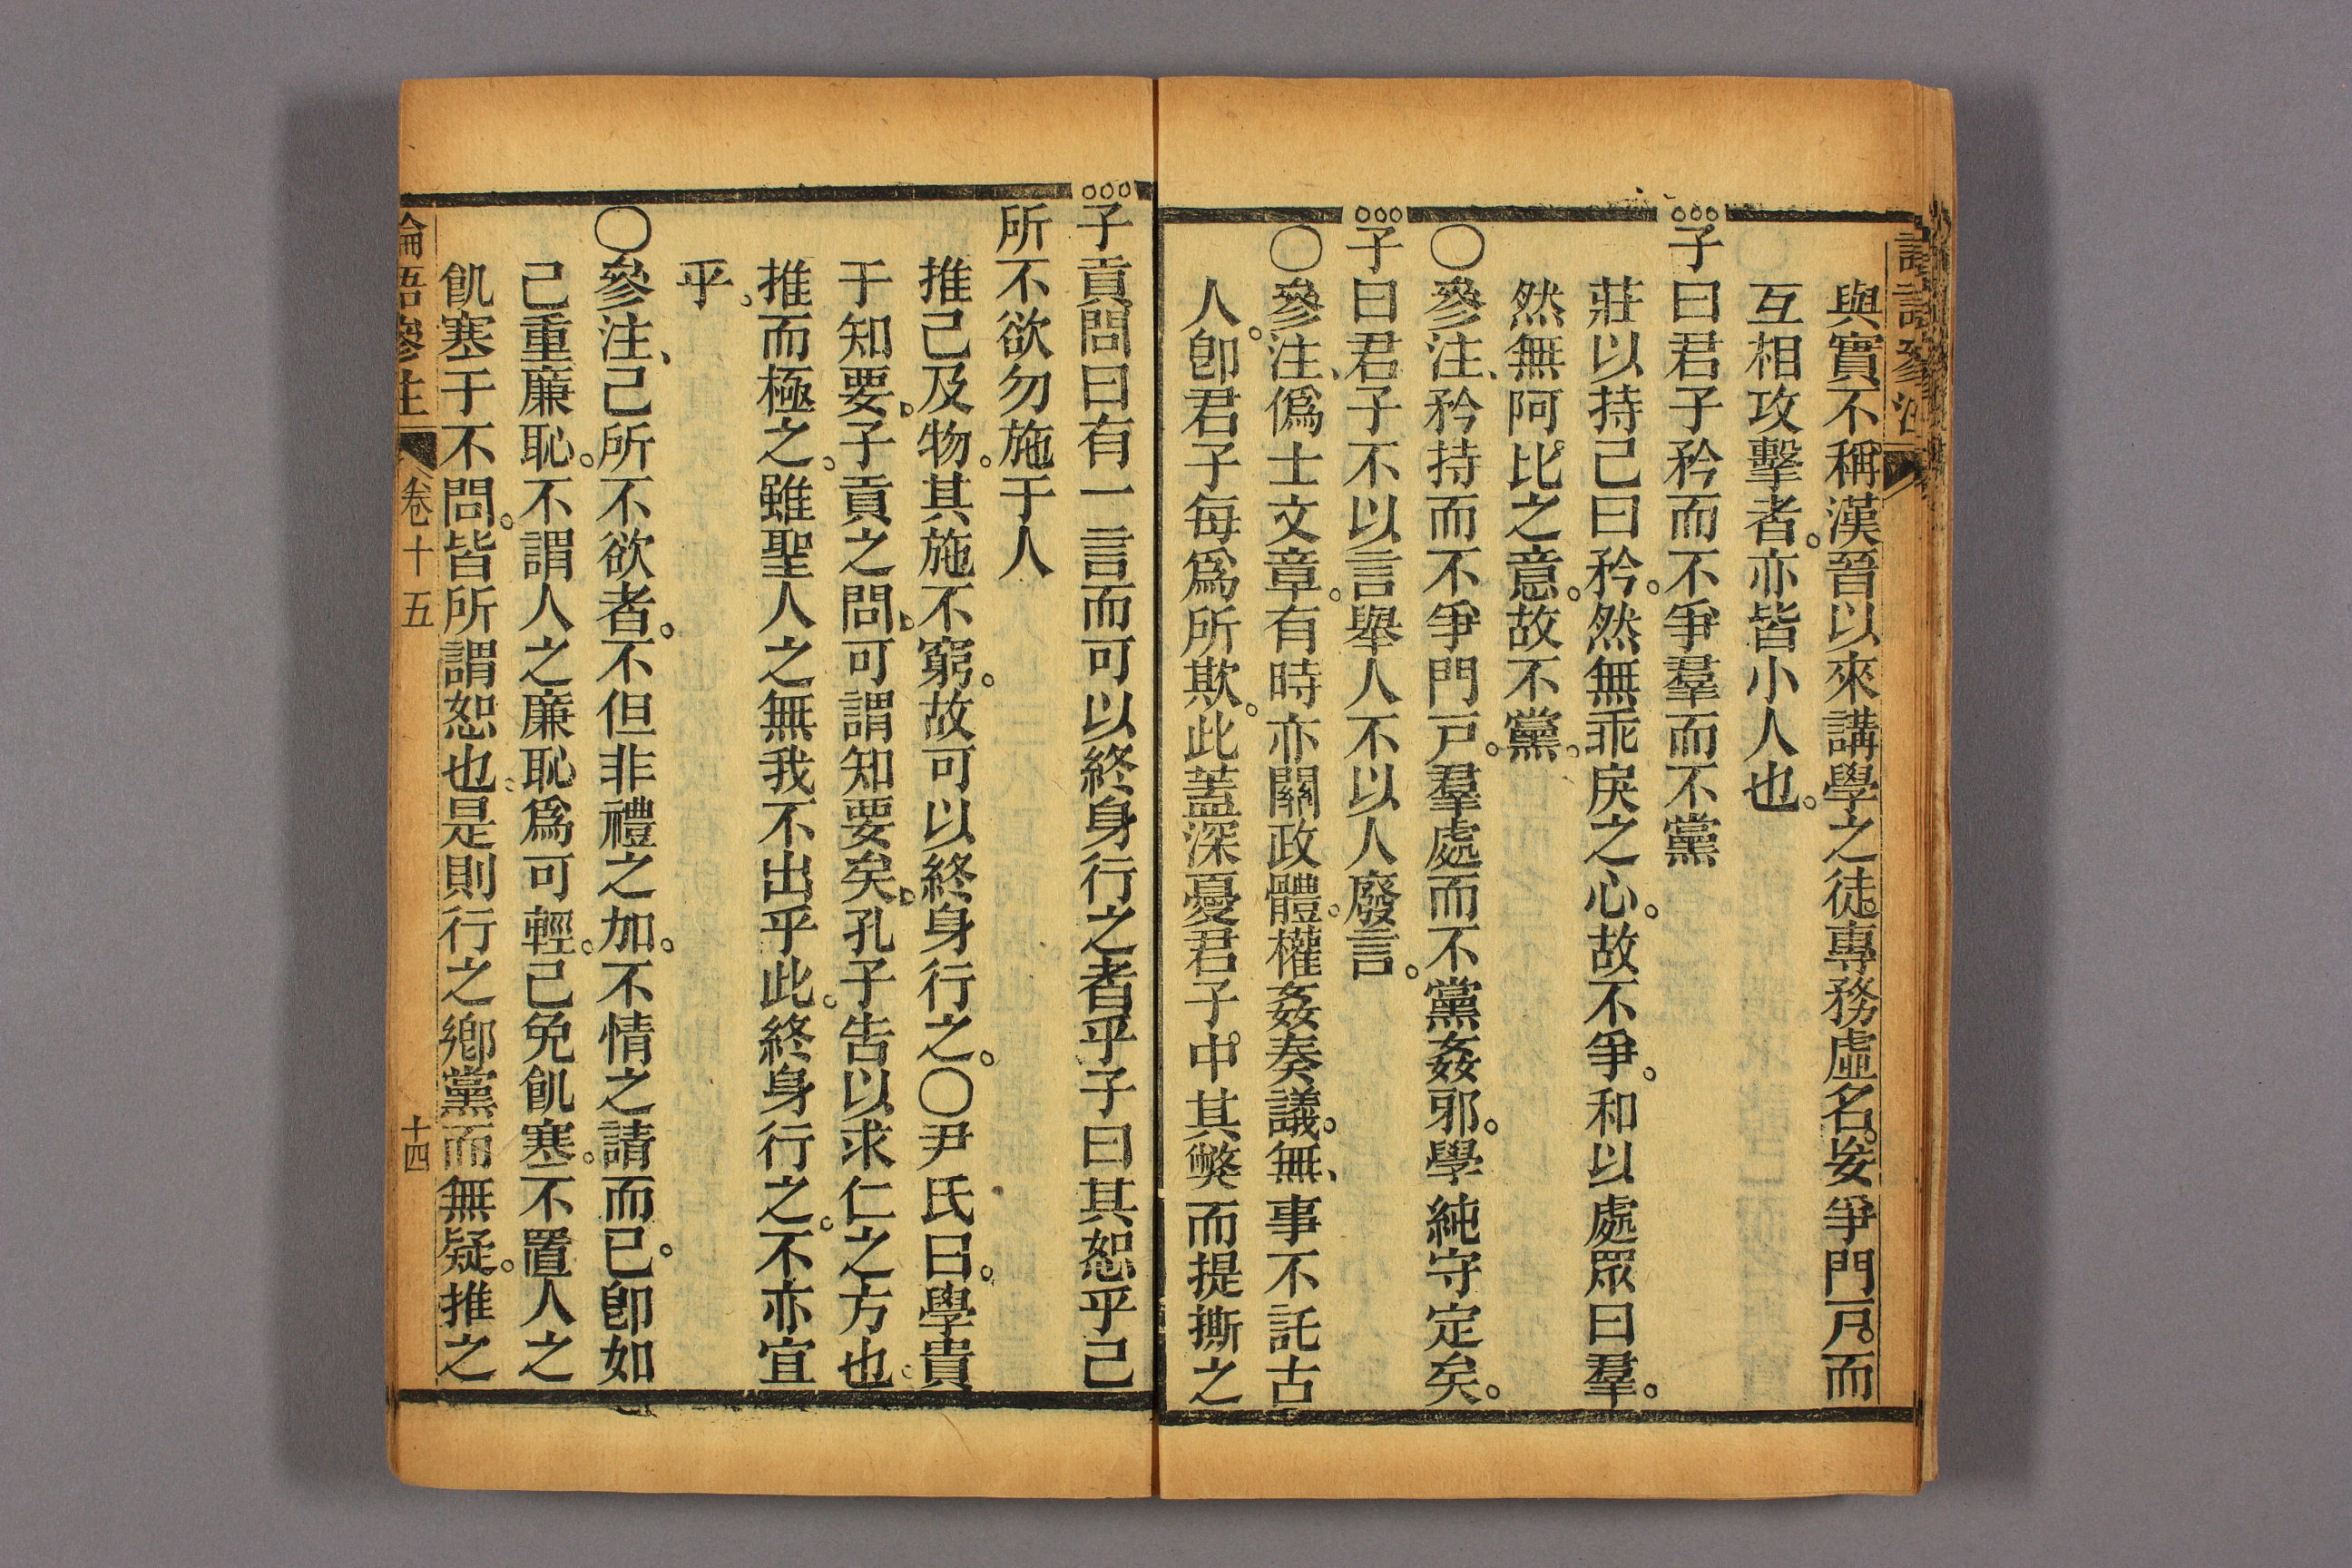 與實不稱漢晉以來講學之徒。專務虛名。妄爭門戶。而
互相攻擊者。亦皆小人也。
子曰君子矜而不爭羣而不黨
莊以持己曰矜。然無乖戾之心。故不爭。和以處眾曰羣。
然無阿比之意。故不黨。
〇參注、矜持而不爭門戶。羣處而不黨姦邪。學純守定矣。
子曰君子不以言舉人不以人廢言。
〇參注、僞士文章。有時亦關政體。權姦奏議。無、事不託古
人。卽君子每爲所欺。此蓋深憂君子。中其弊而提撕之
子貢問曰有一言而可以終身行之者乎子曰其恕乎己
所不欲勿施于人
推己及物。其施不窮。故可以終身行之。〇尹氏曰。學貴
于知要。子貢之問。可謂知要矣。孔子告以求仁之方也。
推而極之。雖聖人之無我不出乎此。終身行之。不亦宜
乎。
〇參注、己所不欲者。不但非禮之加。不情之請而已。卽如
己重廉恥。不謂人之廉恥爲可輕。己免飢寒。不置人之
飢寒于不問。皆所謂恕也。是則行之鄉黨而無疑。推之
論語參注 卷十五 十四